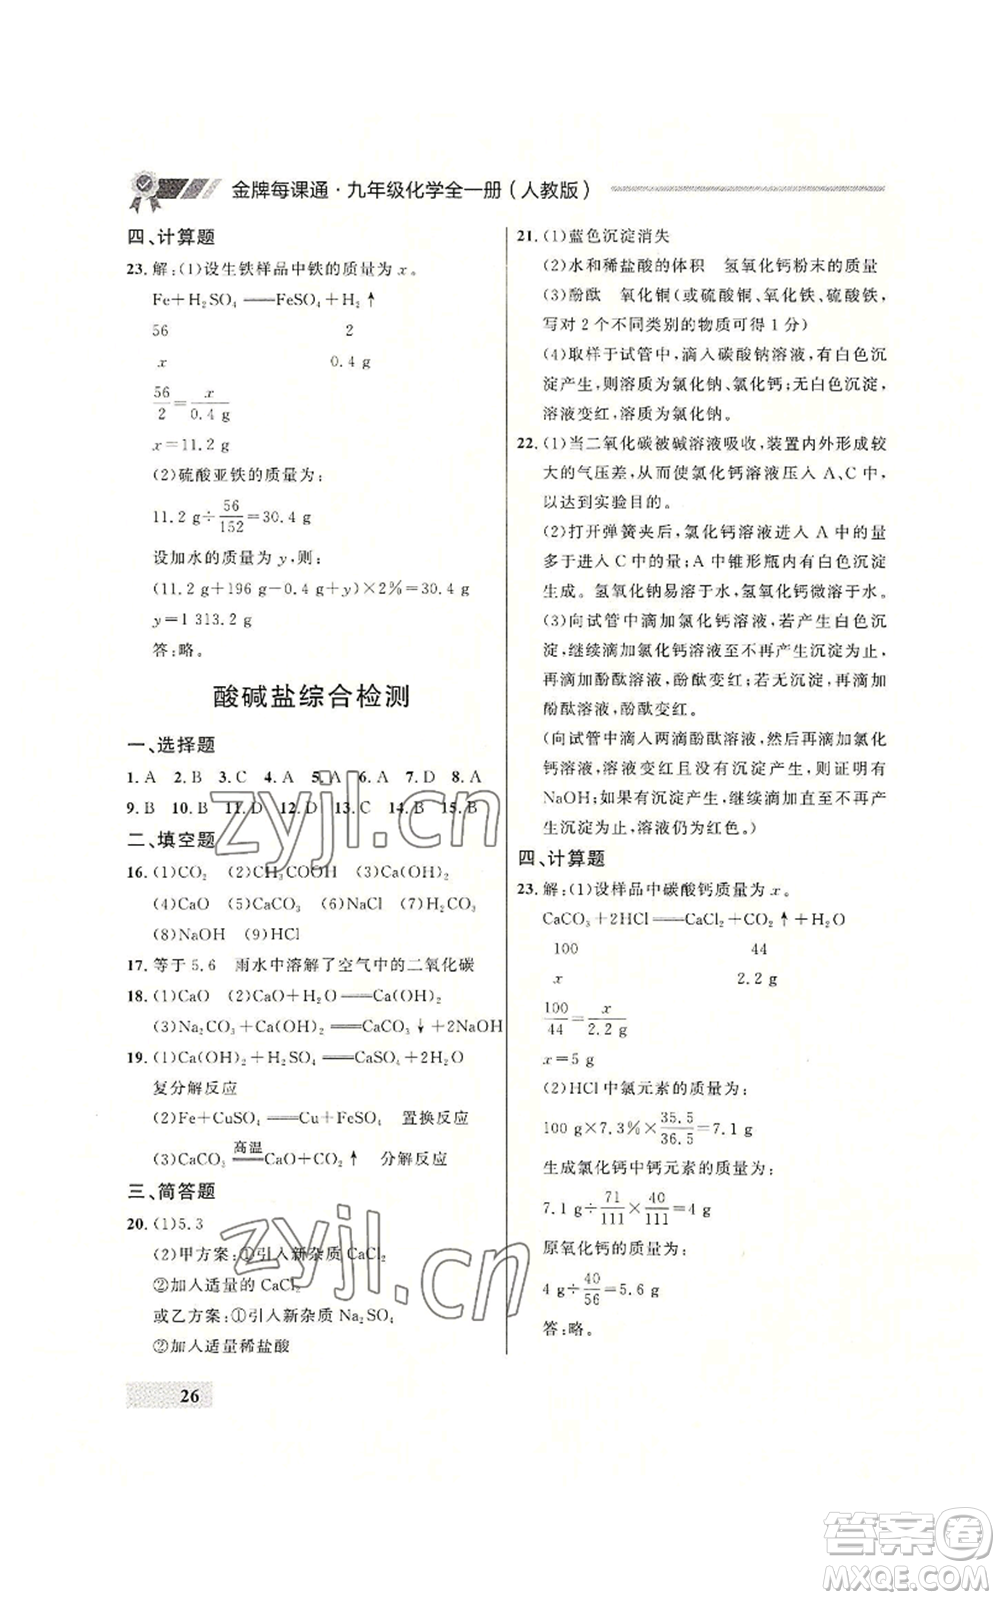 金牌每课通·九年级化学全一册(人教版)
四、计算题
23. 解:(1)设生铁样品中铁的质量为 x。
Fe+H₂SO₄══FeSO₄+H₂↑
56 2
x 0.4 g
56/2=x/0.4 g
x=11.2 g
(2)硫酸亚铁的质量为:
11.2 g÷56/152=30.4 g
设加水的质量为 y,则:
(11.2 g+196 g-0.4 g+y)×2%=30.4 g
y=1 313.2 g
答:略。
酸碱盐综合检测
一、选择题
1. A 2. B 3. C 4. A 5. A 6. A 7. D 8. A
9. B 10. B 11. D 12. D 13. C 14. B 15. B
二、填空题
16. (1)CO₂ (2)CH₃COOH (3)Ca(OH)₂
(4)CaO (5)CaCO₃ (6)NaCl (7)H₂CO₃
(8)NaOH (9)HCl
17. 等于 5.6 雨水中溶解了空气中的二氧化碳
18. (1)CaO (2)CaO+H₂O══Ca(OH)₂
(3)Na₂CO₃+Ca(OH)₂══CaCO₃↓+2NaOH
19. (1)Ca(OH)₂+H₂SO₄══CaSO₄+2H₂O
复分解反应
(2)Fe+CuSO₄══Cu+FeSO₄ 置换反应
(3)CaCO₃ 高温══ CaO+CO₂↑ 分解反应
三、简答题
20. (1)5.3
(2)甲方案:①引入新杂质 CaCl₂
②加入适量的 CaCl₂
或乙方案:①引入新杂质 Na₂SO₄
②加入适量稀盐酸
26
21. (1)蓝色沉淀消失
(2)水和稀盐酸的体积 氢氧化钙粉末的质量
(3)酚酞 氧化铜(或硫酸铜、氧化铁、硫酸铁,
写对 2 个不同类别的物质可得 1 分)
(4)取样于试管中,滴入碳酸钠溶液,有白色沉
淀产生,则溶质为氯化钠、氯化钙;无白色沉淀,
溶液变红,溶质为氯化钠。
22. (1)当二氧化碳被碱溶液吸收,装置内外形成较
大的气压差,从而使氯化钙溶液压入 A、C 中,
以达到实验目的。
(2)打开弹簧夹后,氯化钙溶液进入 A 中的量
多于进入 C 中的量;A 中锥形瓶内有白色沉淀
生成。氢氧化钠易溶于水,氢氧化钙微溶于水。
(3)向试管中滴加氯化钙溶液,若产生白色沉
淀,继续滴加氯化钙溶液至不再产生沉淀为止,
再滴加酚酞溶液,酚酞变红;若无沉淀,滴加
酚酞溶液,酚酞变红。
(向试管中滴入两滴酚酞溶液,再滴加氯化
钙溶液,溶液变红且没有沉淀产生,则证明有
NaOH;如果有沉淀产生,继续滴加至不再产
生沉淀为止,溶液仍为红色。)
四、计算题
23. 解:(1)设样品中碳酸钙质量为 x。
CaCO₃+2HCl══CaCl₂+CO₂↑+H₂O
100 44
x 2.2 g
100/44=x/2.2 g
x=5 g
(2)HCl 中氯元素的质量为:
100 g×7.3%×35.5/36.5=7.1 g
生成氯化钙中钙元素的质量为:
7.1 g÷71/111×40/111=4 g
原氧化钙的质量为:
4 g÷40/56=5.6 g
答:略。
zyjl.cn
zyjl.cn
答案卷
MXQE.COM